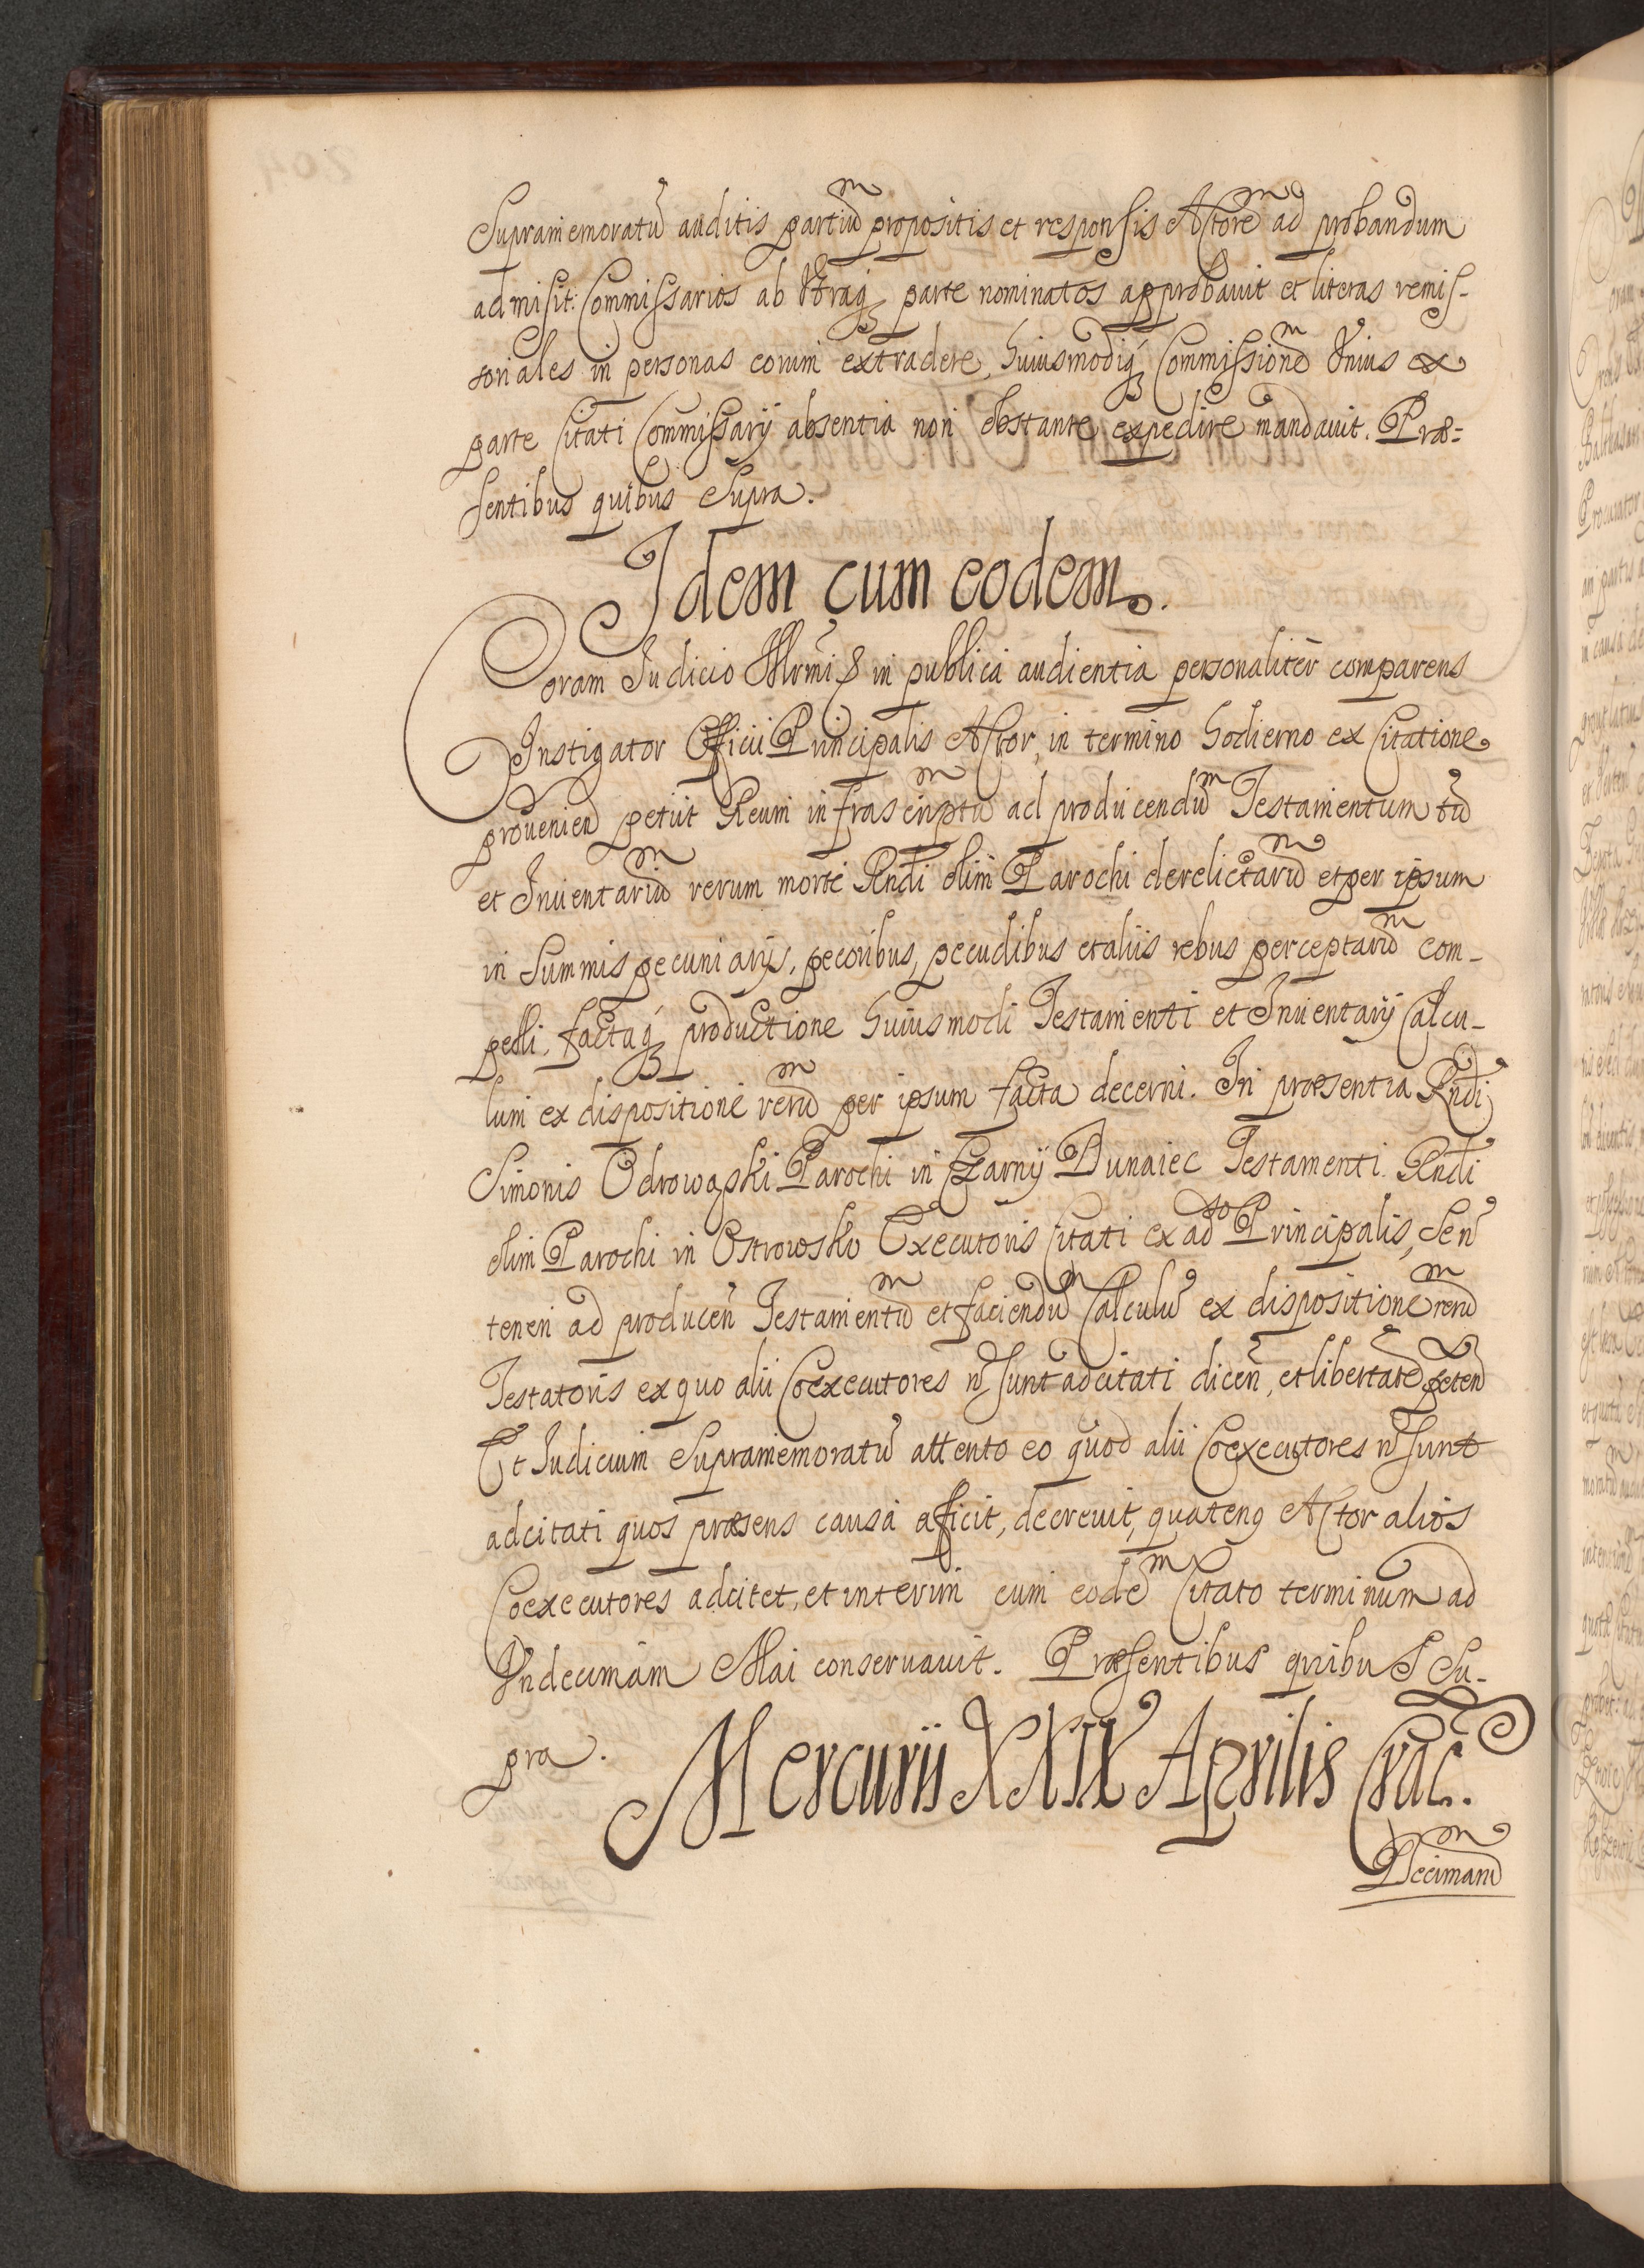 Supramemoratu᷑ auditis partium propositis et responsis Actorem ad probandum
admisit: Commissarios ab Utraq̨ parte nominatos approbavit et literas remis-
soriales in personas eorum extradere, huiusmodiq̨ Commissionem Unius ex
parte Citati Commissarij absentia non obstante expedire mandavit. Præ-
sentibus quibus Supra.
Idem cum eodem.
Coram Judicio Illrmi & in publica audientia personaliter comparens
Instigator Officii Principalis Actor, in termino hodierno ex Citatione
provenien petiit Reum infrascriptum ad producendum Testamentum tum
et Inventarium rerum morte Rndi olim Parochi derelictarum et per ipsum
in Summis pecuniarijs, pecoribus, pecudibus et aliis rebus perceptarum com-
pelli, factaq̨ productione huiusmodi Testamenti et Inventarij Calcu-
lum ex dispositione rerum per ipsum facta decerni. In præsentia Rndi
Simonis Odrowąski Parochi in Czarny Dunaiec Testamenti Rndi
olim Parochi in Ostrowsko Executoris Citati ex adso Principalis, Se n
teneri ad producen Testamentum et faciendum Calculu᷑ ex dispositione rerum
Testatoris ex quo alii Coexecutores n sunt adcitati dicen, et libertarem peten
Et Judicium Supramemoratu᷑ attento eo quod alii Coexecutores n sunt
adcitati quos præsens causa afficit, decrevit, quateng Actor alios
Coexecutores adcitet, et interim cum eodem Citato terminum ad
Undecimam Mai conservavit. Præsentibus quibus Su-
pra.
Mercurii XXIX Aprilis Crac.
Decimarum